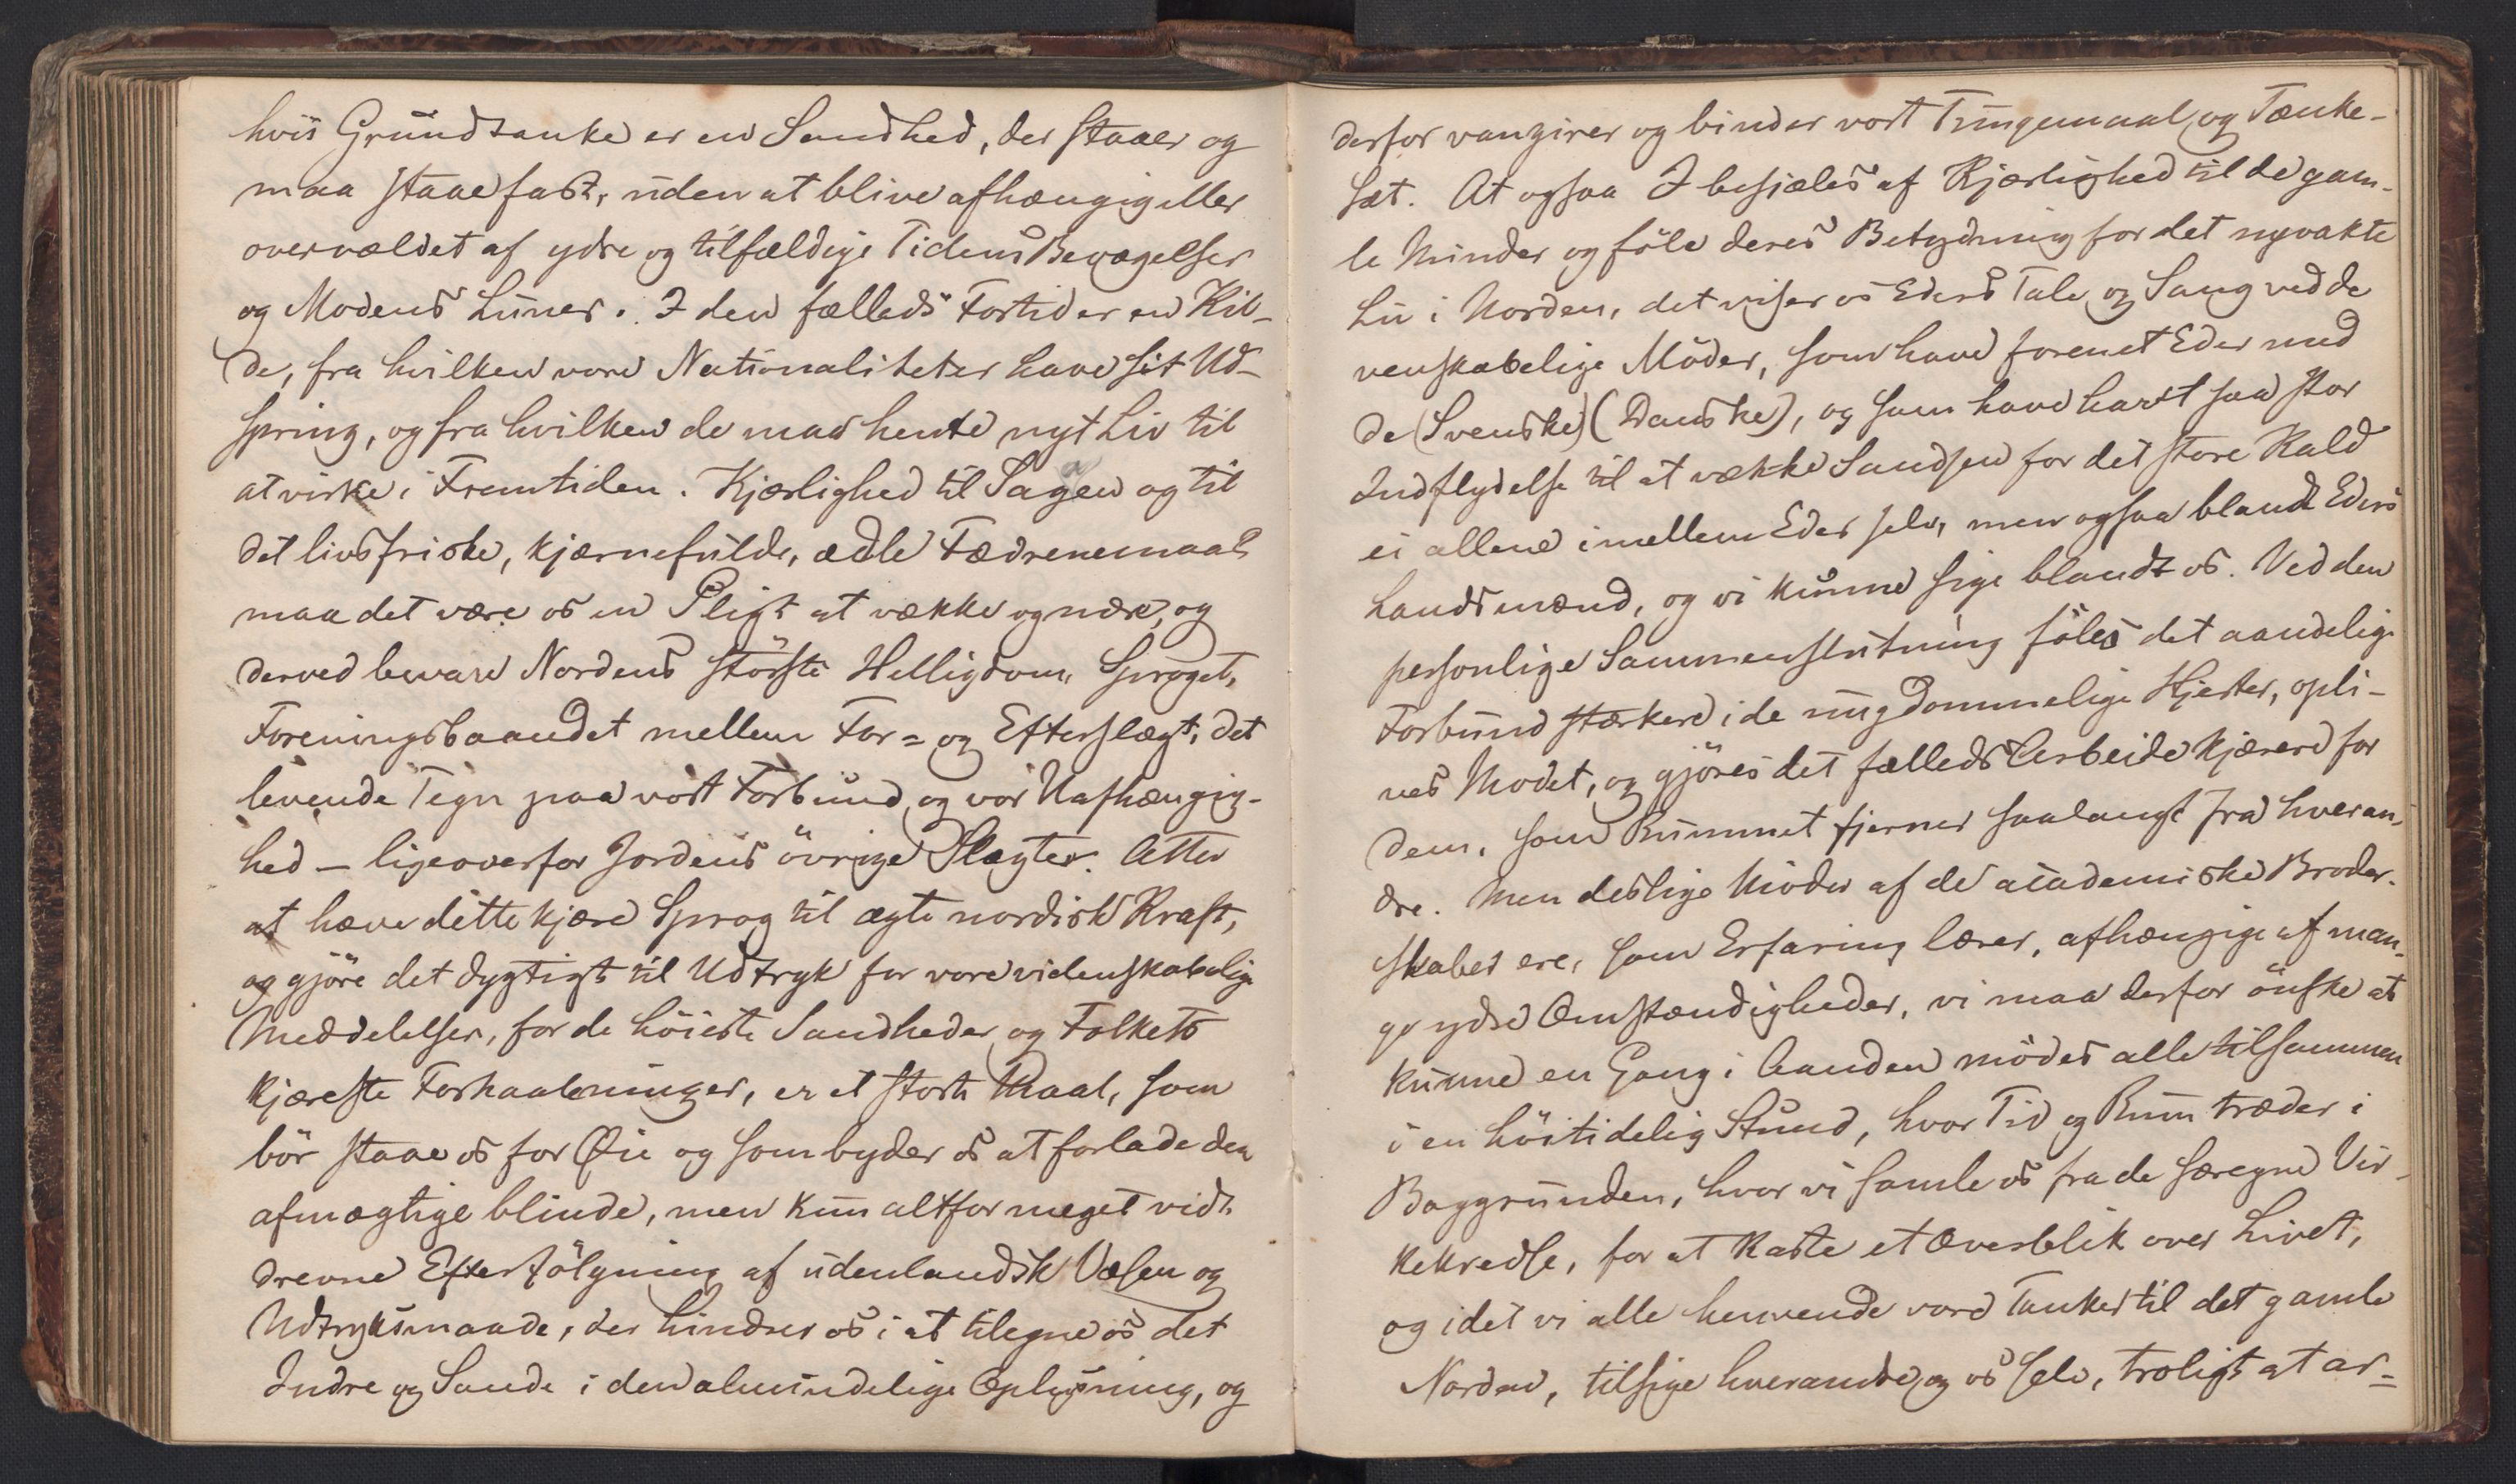 hvis Grundtanke er en Sandhed, der staaer og
maa staae fast, uden at blive afhængig eller
overvældet af ydre og tilfældige Tidens Bevægelser
og Modens Luner. I den fælleds Fortid er en Kil-
de, fra hvilken vore Nationaliteter have sit Ud-
spring, og fra hvilken de maa hente nyt Liv til
at virke i Fremtiden. Kjærlighed til Sagen og til
det livsfriske, kjærnefulde, ædle Fædrenemaal
maa det være os en Pligt at vække og nære, og
derved bevare Nordens største Helligdom, Sproget,
Foreningsbaandet mellem For= og Efterslægt, det
levende Tegn paa vort Forbund og vor Uafhængig-
hed – ligeoverfor Jordens övrige Slægter. Atter
at hæve dette kjære Sprog til ægte nordisk Kraft,
og gjöre det dygtigt til Udtryk for vore videnskabelige
Meddelelser, for de höieste Sandheder og Folkets
kjæreste Forhaabninger, er et stort Maal, som
bör staae os for Øie og som byder os at forlade den
afmægtige blinde, men kun altfor meget vidt
drevne Efterfölgning af udenlandsk Væsen og
Udtryksmaade, der hindrer os i at tilegne os det
Indre og Sande i den almindelige Oplysning, og
derfor vanzirer og binder vort Tungemaal og Tænke-
sæt. At ogsaa I besjæles af Kjærlighed til de gam-
le Minder og föle deres Betydning for det nyvakte
Liv i Norden, det viser os Eders Tale og Sang ved de
venskabelige Möder, som have forenet Eder med
de (Svenske) (Danske), og som have havt saa stor
Indflydelse til at vække Sandsen for det store Kald
ei allene imellem Eder selv, men ogsaa blandt Eders
Landsmænd, og vi kunne sige blandt os. Ved den
personlige Sammenslutning föles det aandelige
Forbund stærkere i de ungdommelige Hjerter, opli-
ves Modet, og gjöres det fælleds Arbeide kjærere for
dem, som Rummet fjerner saalangt fra hveran-
dre. Men deslige Möder af de academiske Broder-
skaber ere, som Erfaring lærer, afhængige af man-
ge ydre Omstændigheder, vi maa derfor önske at
kunne en Gang i Aanden mödes alle tilsammen
i en höitidelig Stund, hvor Tid og Rum træder i
Baggrunden, hvor vi samle os fra de særegne Vir-
kekredse, for at kaste et Overblik over Livet,
og idet vi alle henvende vore Tanker til det gamle
Norden, tilsige hverandre og os selv, troligt at ar=